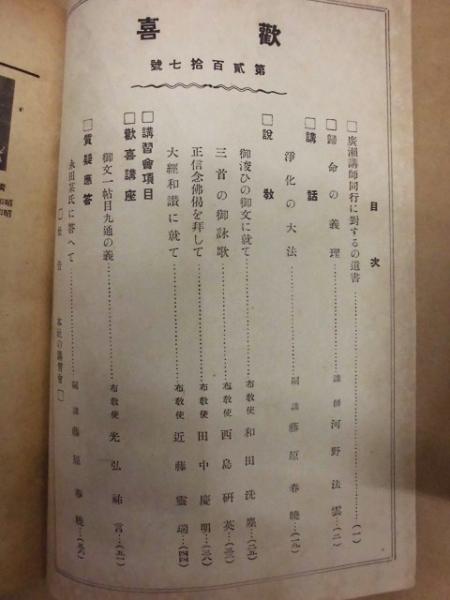 歡喜
第貳百拾七號
目次
□廣瀬講師同行に對するの遺書……(一)
□歸命の義理……講師 河野法雲…(二)
□講話
淨化の大法……嗣講 藤原春曉…(一九)
□說教
御浚ひの御文に就て……布教使 和田洗塵…(二九)
三首の御詠歌……布教使 西島研英…(三三)
正信念佛偈を拜して……布教使 田中慶明…(三八)
大經和讃に就て……布教使 近藤靈瑞…(四四)
□講習會項目
□歡喜講座
御文一帖目九通の義……布教使 光弘祐言…(五一)
□質疑應答
永田某氏に答へて……嗣講 藤原春曉…
〔社告 本社の講習會〕